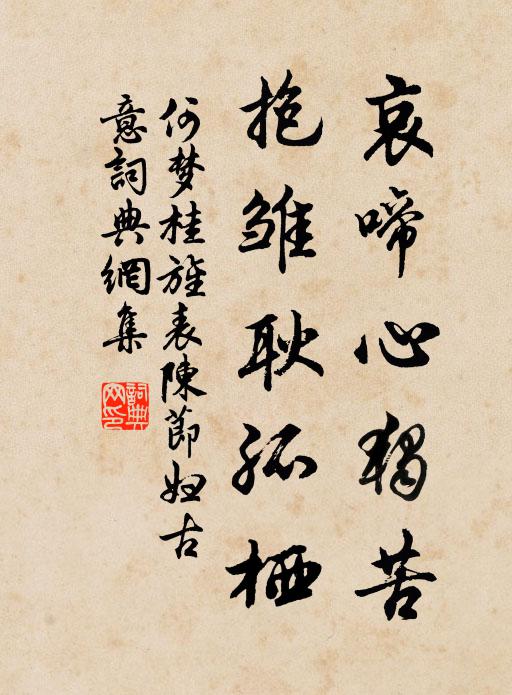 哀啼心独苦
抱雏耿孤栖
何梦桂旌表陳節妇古
意詞典網集
詞典
网印